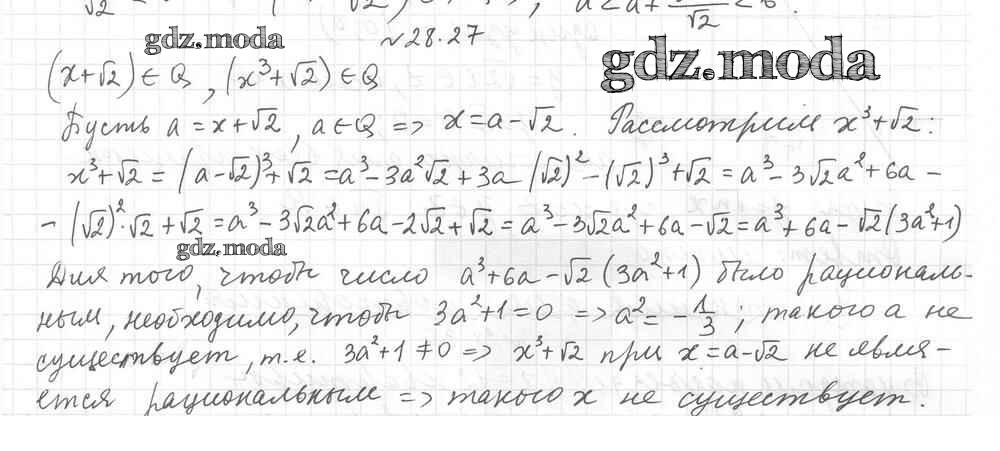 √2 √2 a < a + √2 < b .
gdz.moda
№28.27
gdz.moda
(x+√2) ∈ Q , (x³+√2) ∈ Q
Пусть a = x+√2, a ∈ Q => x = a-√2. Рассмотрим x³+√2:
x³+√2 = (a-√2)³+√2 = a³-3a²√2+3a(√2)²-(√2)³+√2 = a³-3√2a²+6a-
-(√2)²·√2+√2 = a³-3√2a²+6a-2√2+√2 = a³-3√2a²+6a-√2 = a³+6a-√2(3a²+1)
gdz.moda
Для того, чтобы число a³+6a-√2(3a²+1) было рациональ-
ным, необходимо, чтобы 3a²+1=0 => a²=-1/3; такого a не
существует, т.е. 3a²+1≠0 => x³+√2 при x=a-√2 не явля-
ется рациональным => такого x не существует.